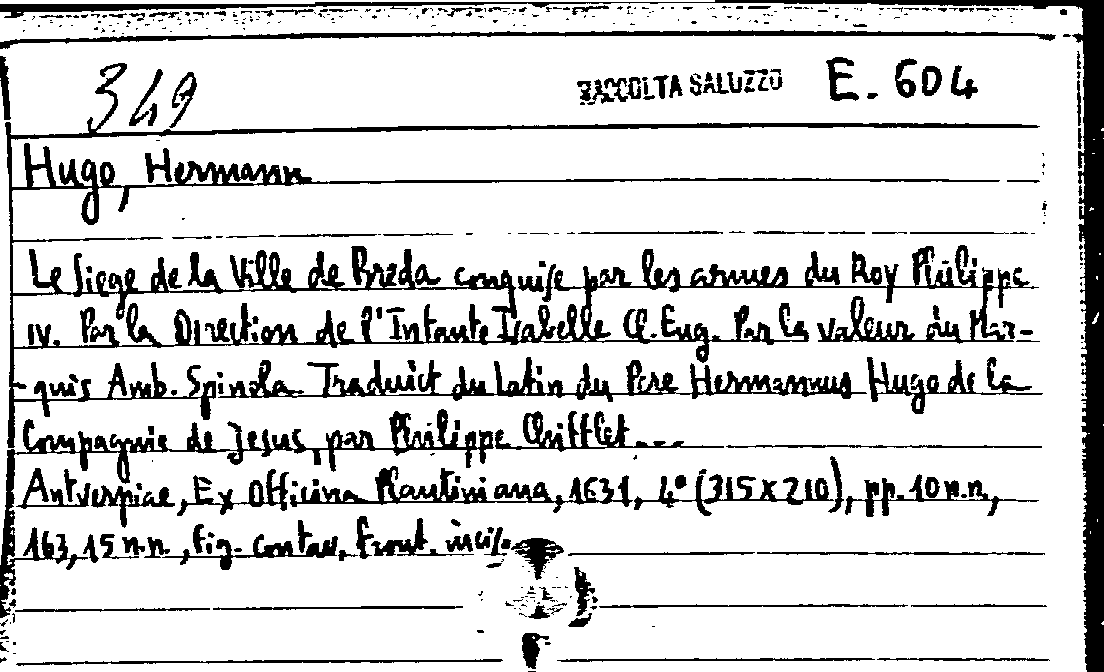 349 RACCOLTA SALUZZO E. 604
Hugo, Hermann
Le Siege de la Ville de Breda conquise par les armes du Roy Philippe
IV. Par la Direction de l'Infante Isabelle Cl. Eug. Par la valeur du Mar-
-quis Amb. Spinola. Traduict du Latin du Pere Hermannus Hugo de la
Compagnie de Jesus, par Philippe Chifflet...
Antverpiae, Ex Officina Plantiniana, 1631, 4° (315x210), pp. 10 n.n.,
163, 15 n.n., fig. con tav. front. incis.